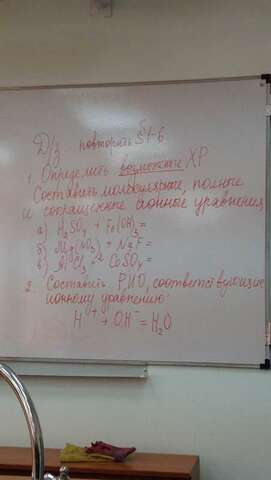 Д/з повторить §1-6
1. Определить возможные ХР
Составить молекулярные, полные
и сокращенные ионные уравнения
а) H2SO4 + Fe(OH)3 =
б) Mg(NO3)2 + NaF =
в) AlCl3 + CuSO4 =
2. Составить РИО, соответствующие
ионному уравнению:
H+ + OH- = H2O